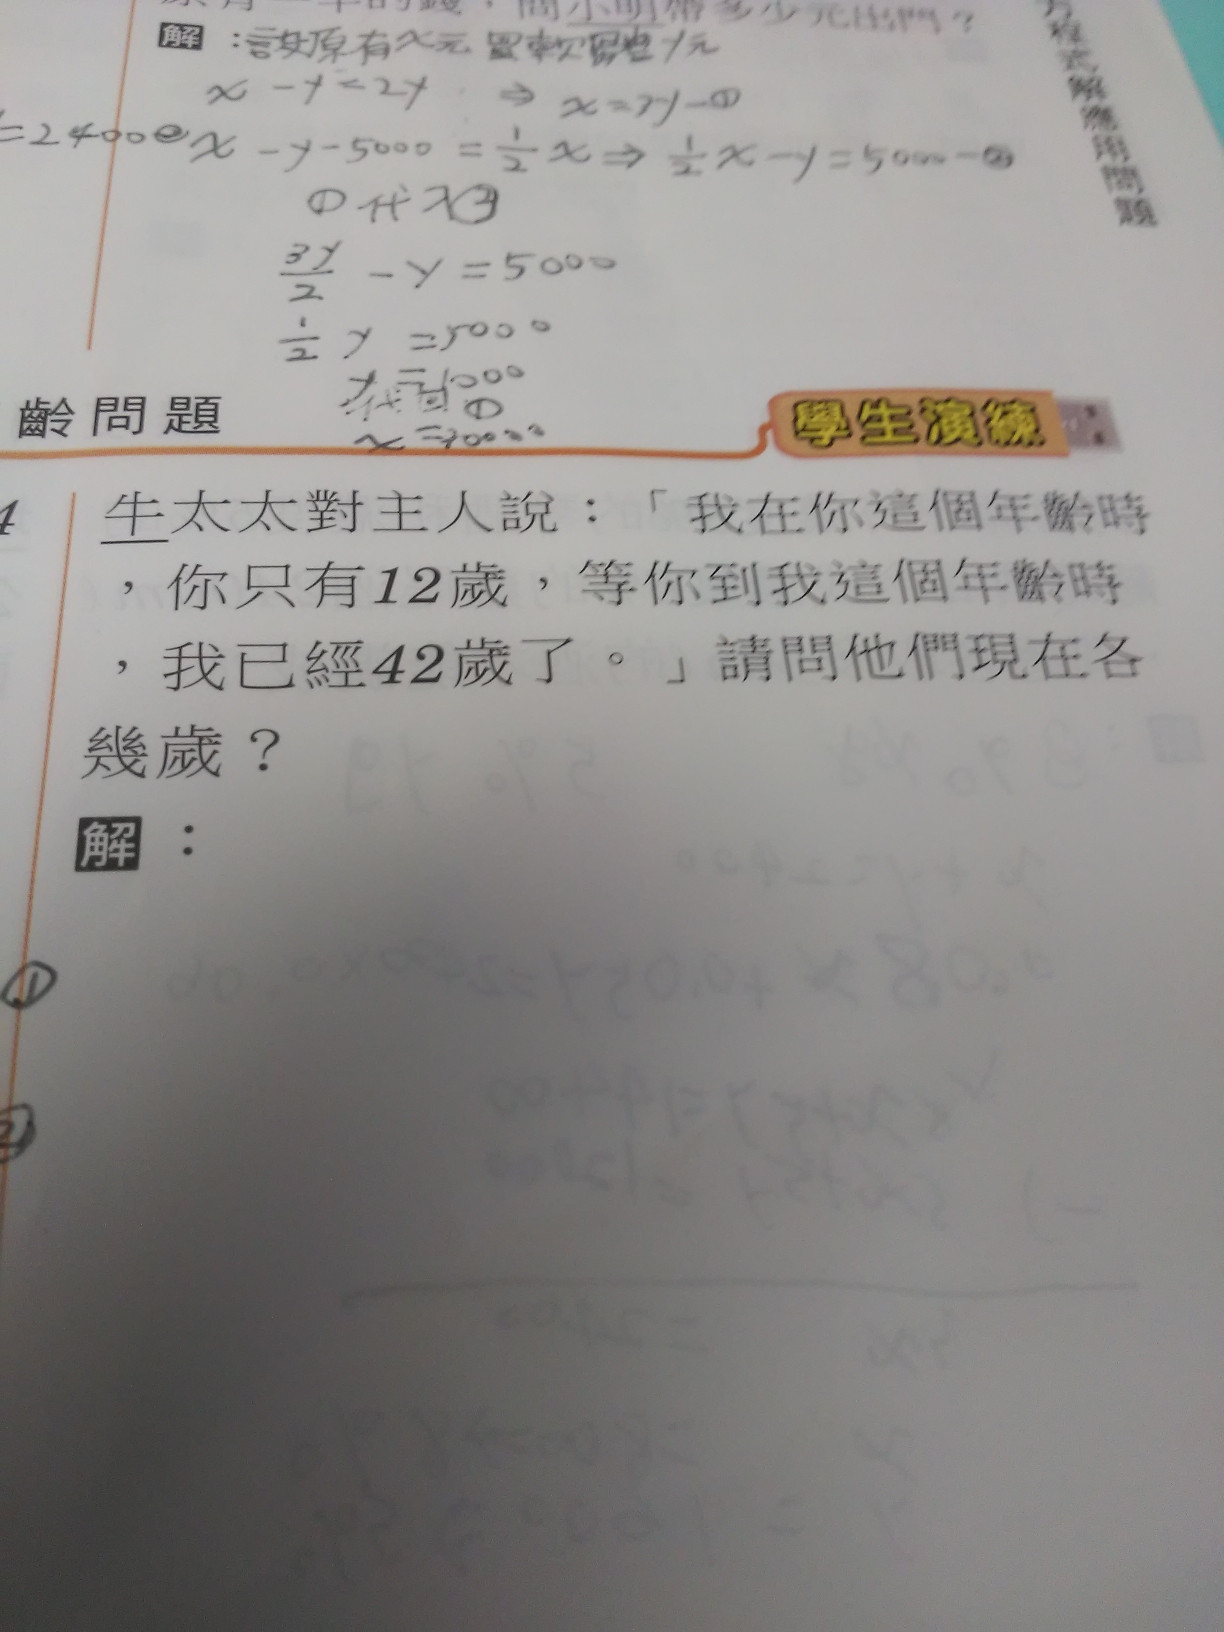 解：設原有x元 買軟體 y元
x - y = 2y ⇒ x = 3y - ①
= 2400② x - y - 5000 = 1/2 x ⇒ 1/2 x - y = 5000 - ②
①代入②
3y/2 - y = 5000
1/2 y = 5000
y = 10000
代回①
x = 30000
方程式解應用問題
齡問題
學生演練
4
牛太太對主人說：「我在你這個年齡時
，你只有12歲，等你到我這個年齡時
，我已經42歲了。」請問他們現在各
幾歲？
解：
①
②